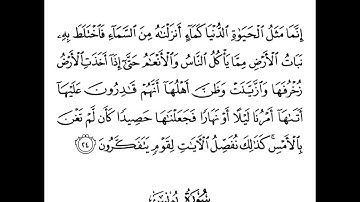 إِنَّمَا مَثَلُ ٱلْحَيَوٰةِ ٱلدُّنْيَا كَمَآءٍ أَنزَلْنَٰهُ مِنَ ٱلسَّمَآءِ فَٱخْتَلَطَ بِهِۦ
نَبَاتُ ٱلْأَرْضِ مِمَّا يَأْكُلُ ٱلنَّاسُ وَٱلْأَنْعَٰمُ حَتَّىٰٓ إِذَآ أَخَذَتِ ٱلْأَرْضُ
زُخْرُفَهَا وَٱزَّيَّنَتْ وَظَنَّ أَهْلُهَآ أَنَّهُمْ قَٰدِرُونَ عَلَيْهَآ
أَتَىٰهَآ أَمْرُنَا لَيْلًا أَوْ نَهَارًا فَجَعَلْنَٰهَا حَصِيدًا كَأَن لَّمْ تَغْنَ
بِٱلْأَمْسِ ۚ كَذَٰلِكَ نُفَصِّلُ ٱلْـَٔايَٰتِ لِقَوْمٍ يَتَفَكَّرُونَ ٢٤
سُورَةُ يُونُسَ